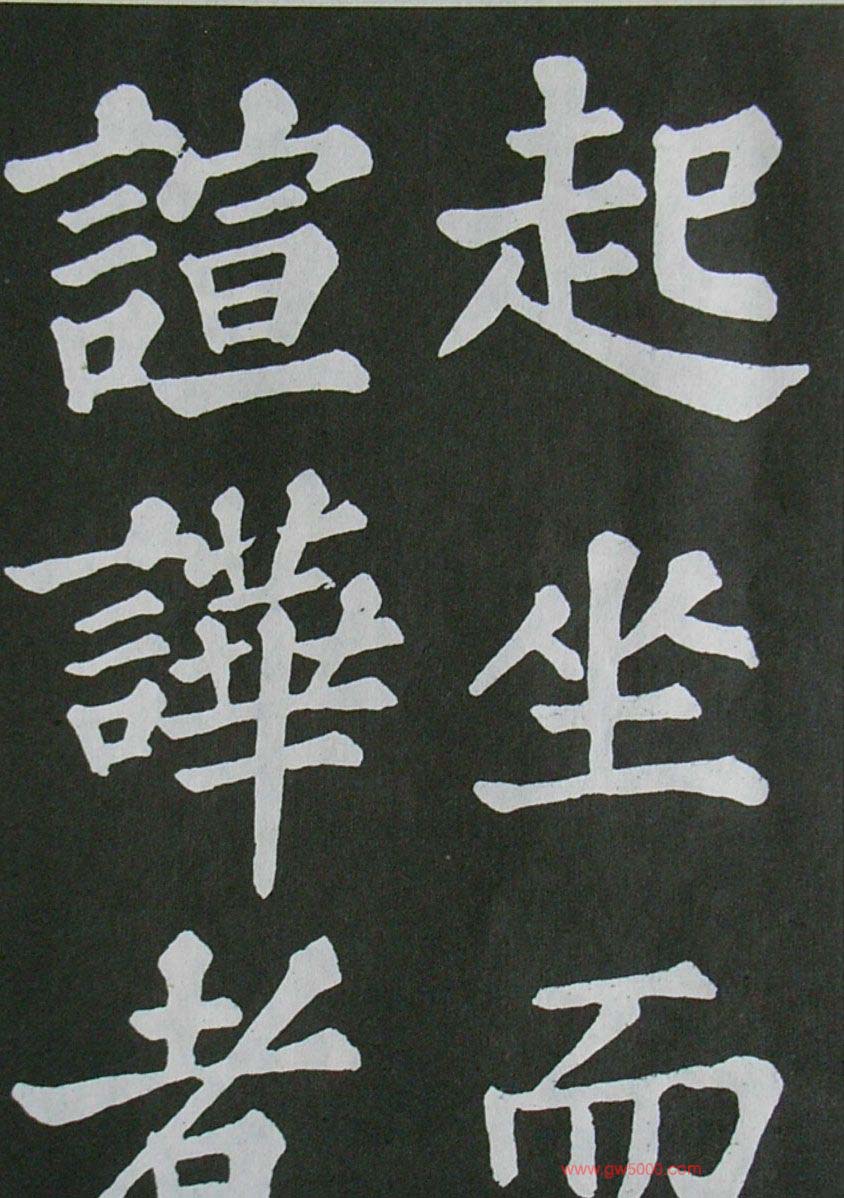 起坐而
諠譁者
www.gw5000.com